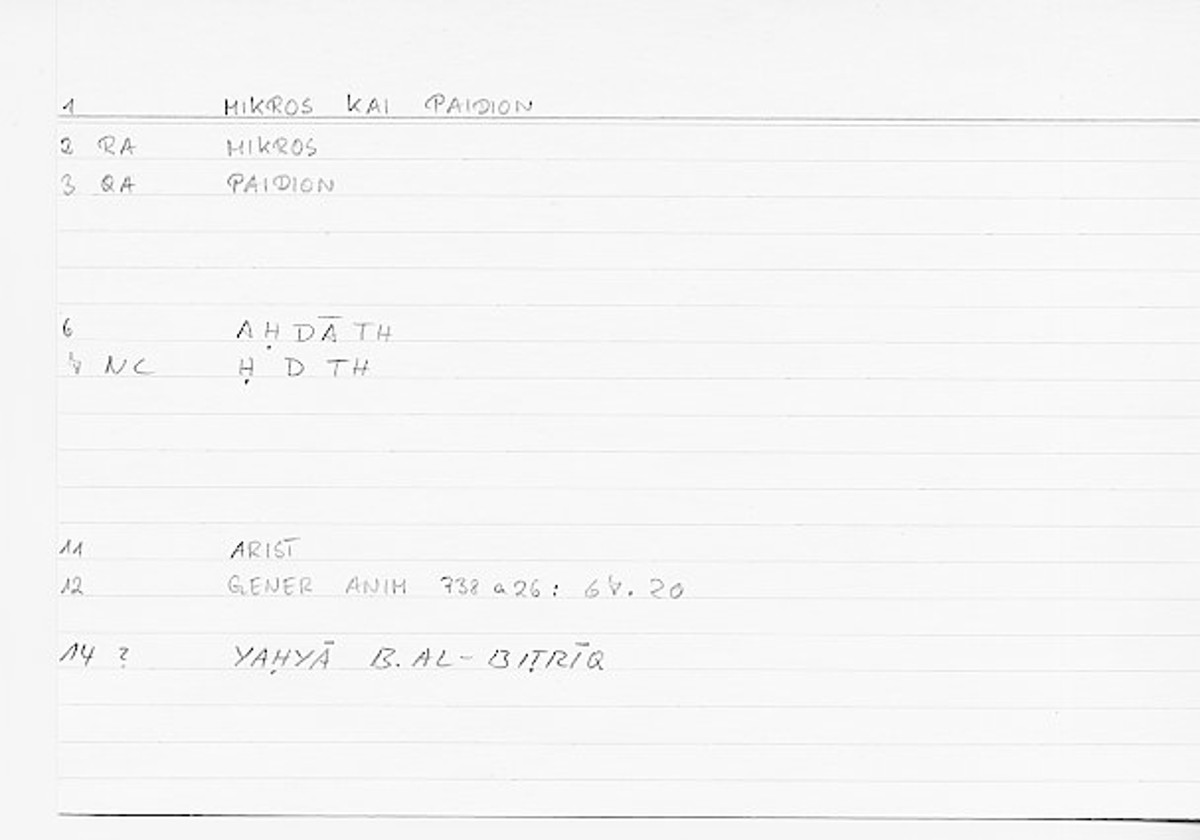 1 MIKROS KAI PAIDION
2 RA MIKROS
3 QA PAIDION
6 AḤDĀTH
NC Ḥ D TH
11 ARIST
12 GENER ANIM 738 a 26:
14 ? YAḤYĀ B. AL-BIṬRĪQ